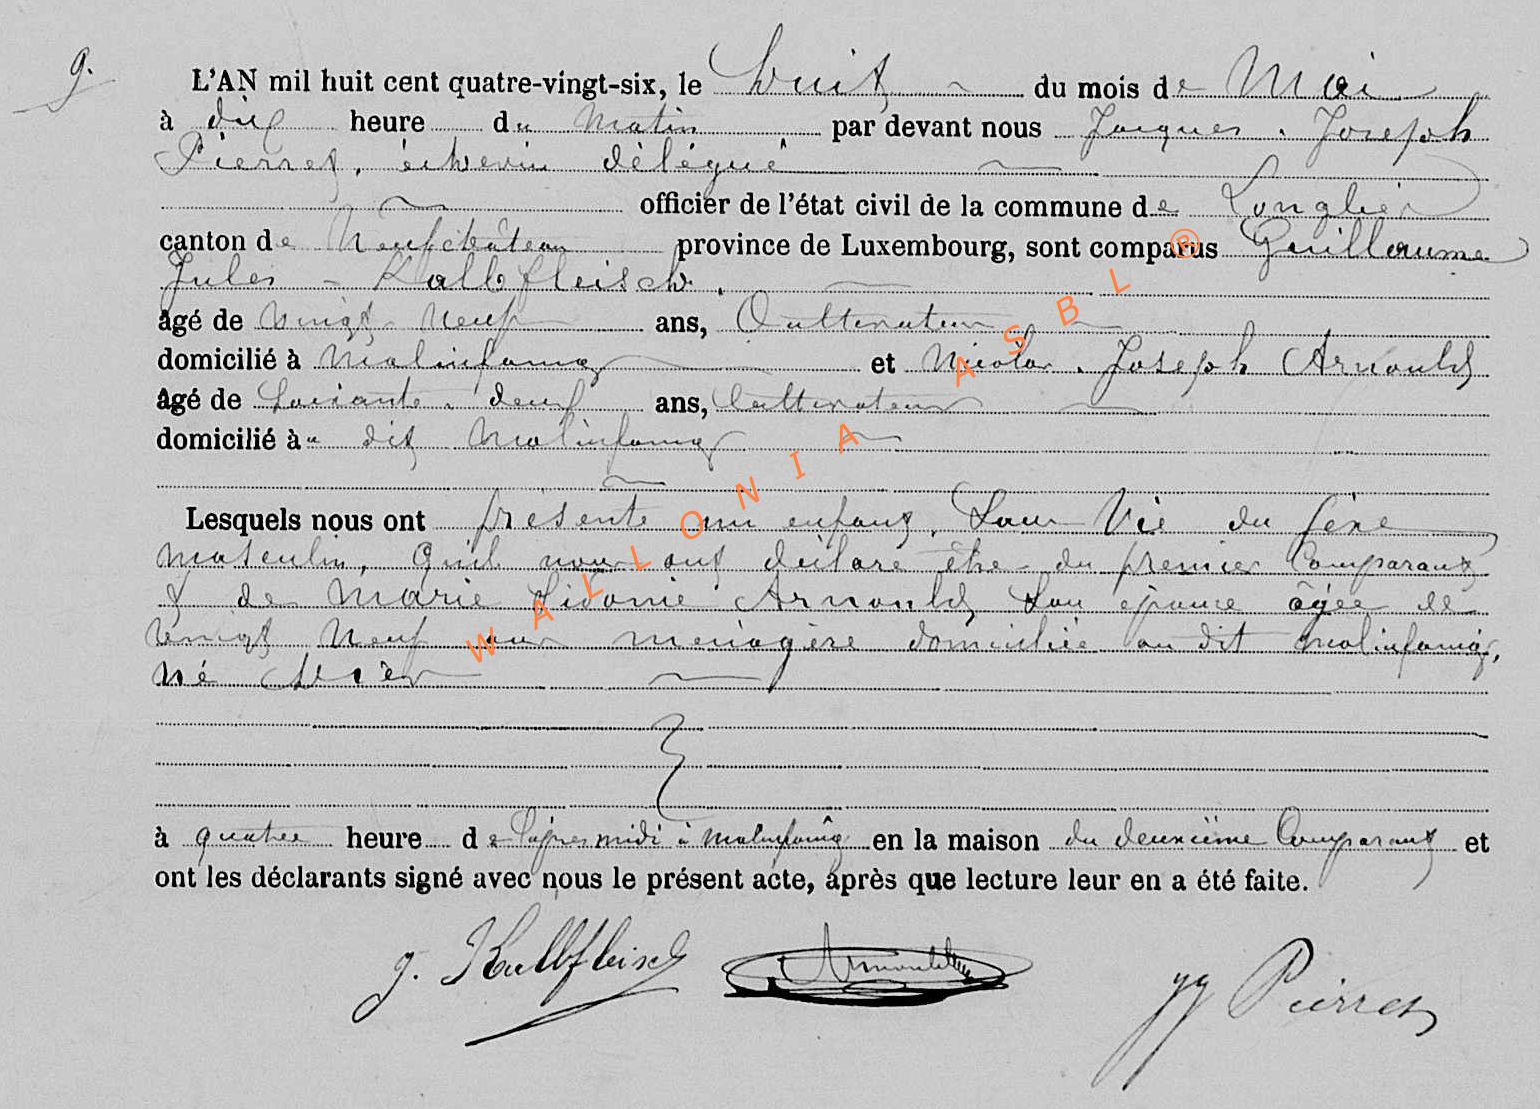 9.
L'AN mil huit cent quatre-vingt-six, le huit du mois de Mai
à dix heure du matin par devant nous Jacques Joseph
Pierret, échevin délégué
officier de l'état civil de la commune de Longlier
canton de Neufchâteau province de Luxembourg, sont comparus Guillaume
Jules Kalbfleisch,
âgé de vingt neuf ans, Cultivateur
domicilié à Molinfaing et Nicolas Joseph Arnould
âgé de soixante deux ans, Cultivateur
domicilié à dit Molinfaing
Lesquels nous ont présenté un enfant, Sans Vie du sexe
masculin, qu'ils nous ont déclaré être du premier Comparant
& de Marie Sidonie Arnould, son épouse âgée de
vingt neuf ans ménagère domiciliée au dit Molinfaing,
né
à quatre heure de l'après midi à Molinfaing en la maison du deuxième Comparant et
ont les déclarants signé avec nous le présent acte, après que lecture leur en a été faite.
J. Kalbfleisch Arnould JJ Pierret
WALLONIA ASBL ®